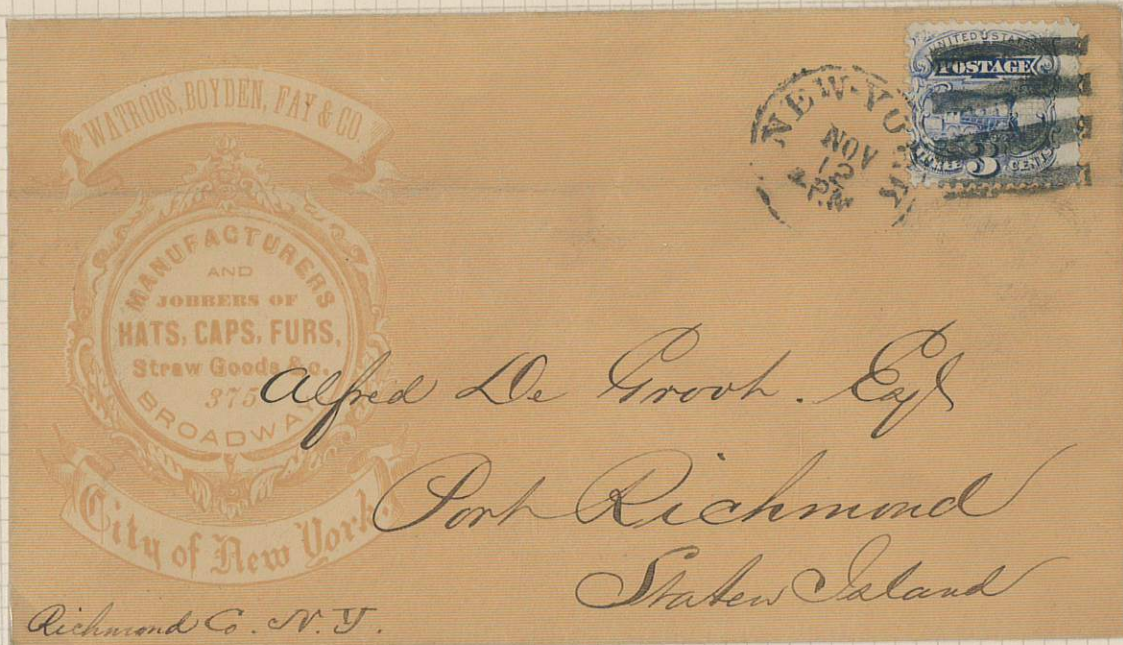 WATROUS, BOYDEN, FAY & CO.
MANUFACTURERS
AND
JOBBERS OF
HATS, CAPS, FURS,
Straw Goods &c.
375
BROADWAY
City of New York.
NEW-YORK
NOV
12
P.M.
UNITED STATES
POSTAGE
THREE 3 CENTS
Alfred De Groot. Esq
Port Richmond
Staten Island
Richmond Co. N. Y.